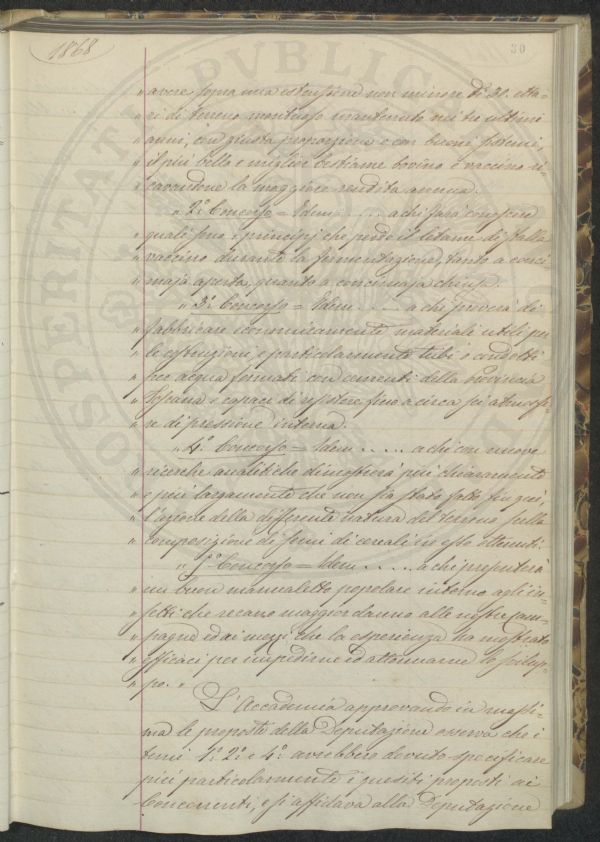 1868
30
" avere sopra una estensione non minore di 30. etta-
" ri di terreno montuoso mantenuto nei tre ultimi
" anni, con giusta proporzione e con buoni sistemi,
" il più bello e miglior bestiame bovino e vaccino ri-
" cavandone la maggiore rendita annua.
" 2.° Concorso = Idem . . . . a chi farà conoscere
" quali sono i principj che perde il letame di stalla
" vaccino durante la fermentazione, tanto a conci-
" maja aperta, quanto a concimaja chiusa.
" 3.° Concorso = Idem . . . . a chi proverà di
" fabbricare economicamente materiali utili per
" le costruzioni, e particolarmente tubi o condotti
" per acqua formati con cementi della Provincia
" e capace di resistere fino a circa sei atmosfe-
" re di pressione interna.
" 4.° Concorso = Idem . . . . . a chi con nuove
" ricerche analitiche dimostrerà più chiaramente
" e più largamente che non sia stato fatto fin qui,
" l'azione della differente natura del terreno sulla
" composizione di semi di cereali in esso ottenuti.
" 5.° Concorso = Idem . . . . . a chi presenterà
" un buon manualetto popolare intorno agli in-
" setti che recano maggior danno alle nostre cam-
" pagne ed ai mezzi che la esperienza ha mostrato
" efficaci per impedirne ed attenuarne lo svilup-
" po. "
L'Accademia approvando in massi-
ma le proposte della Deputazione osserva che i
temi 1.° 2.° e 4.° avrebbero dovuto specificare
più particolarmente i quesiti proposti ai
Concorrenti, e si affidava alla Deputazione
SPERITATI PUBLICAE